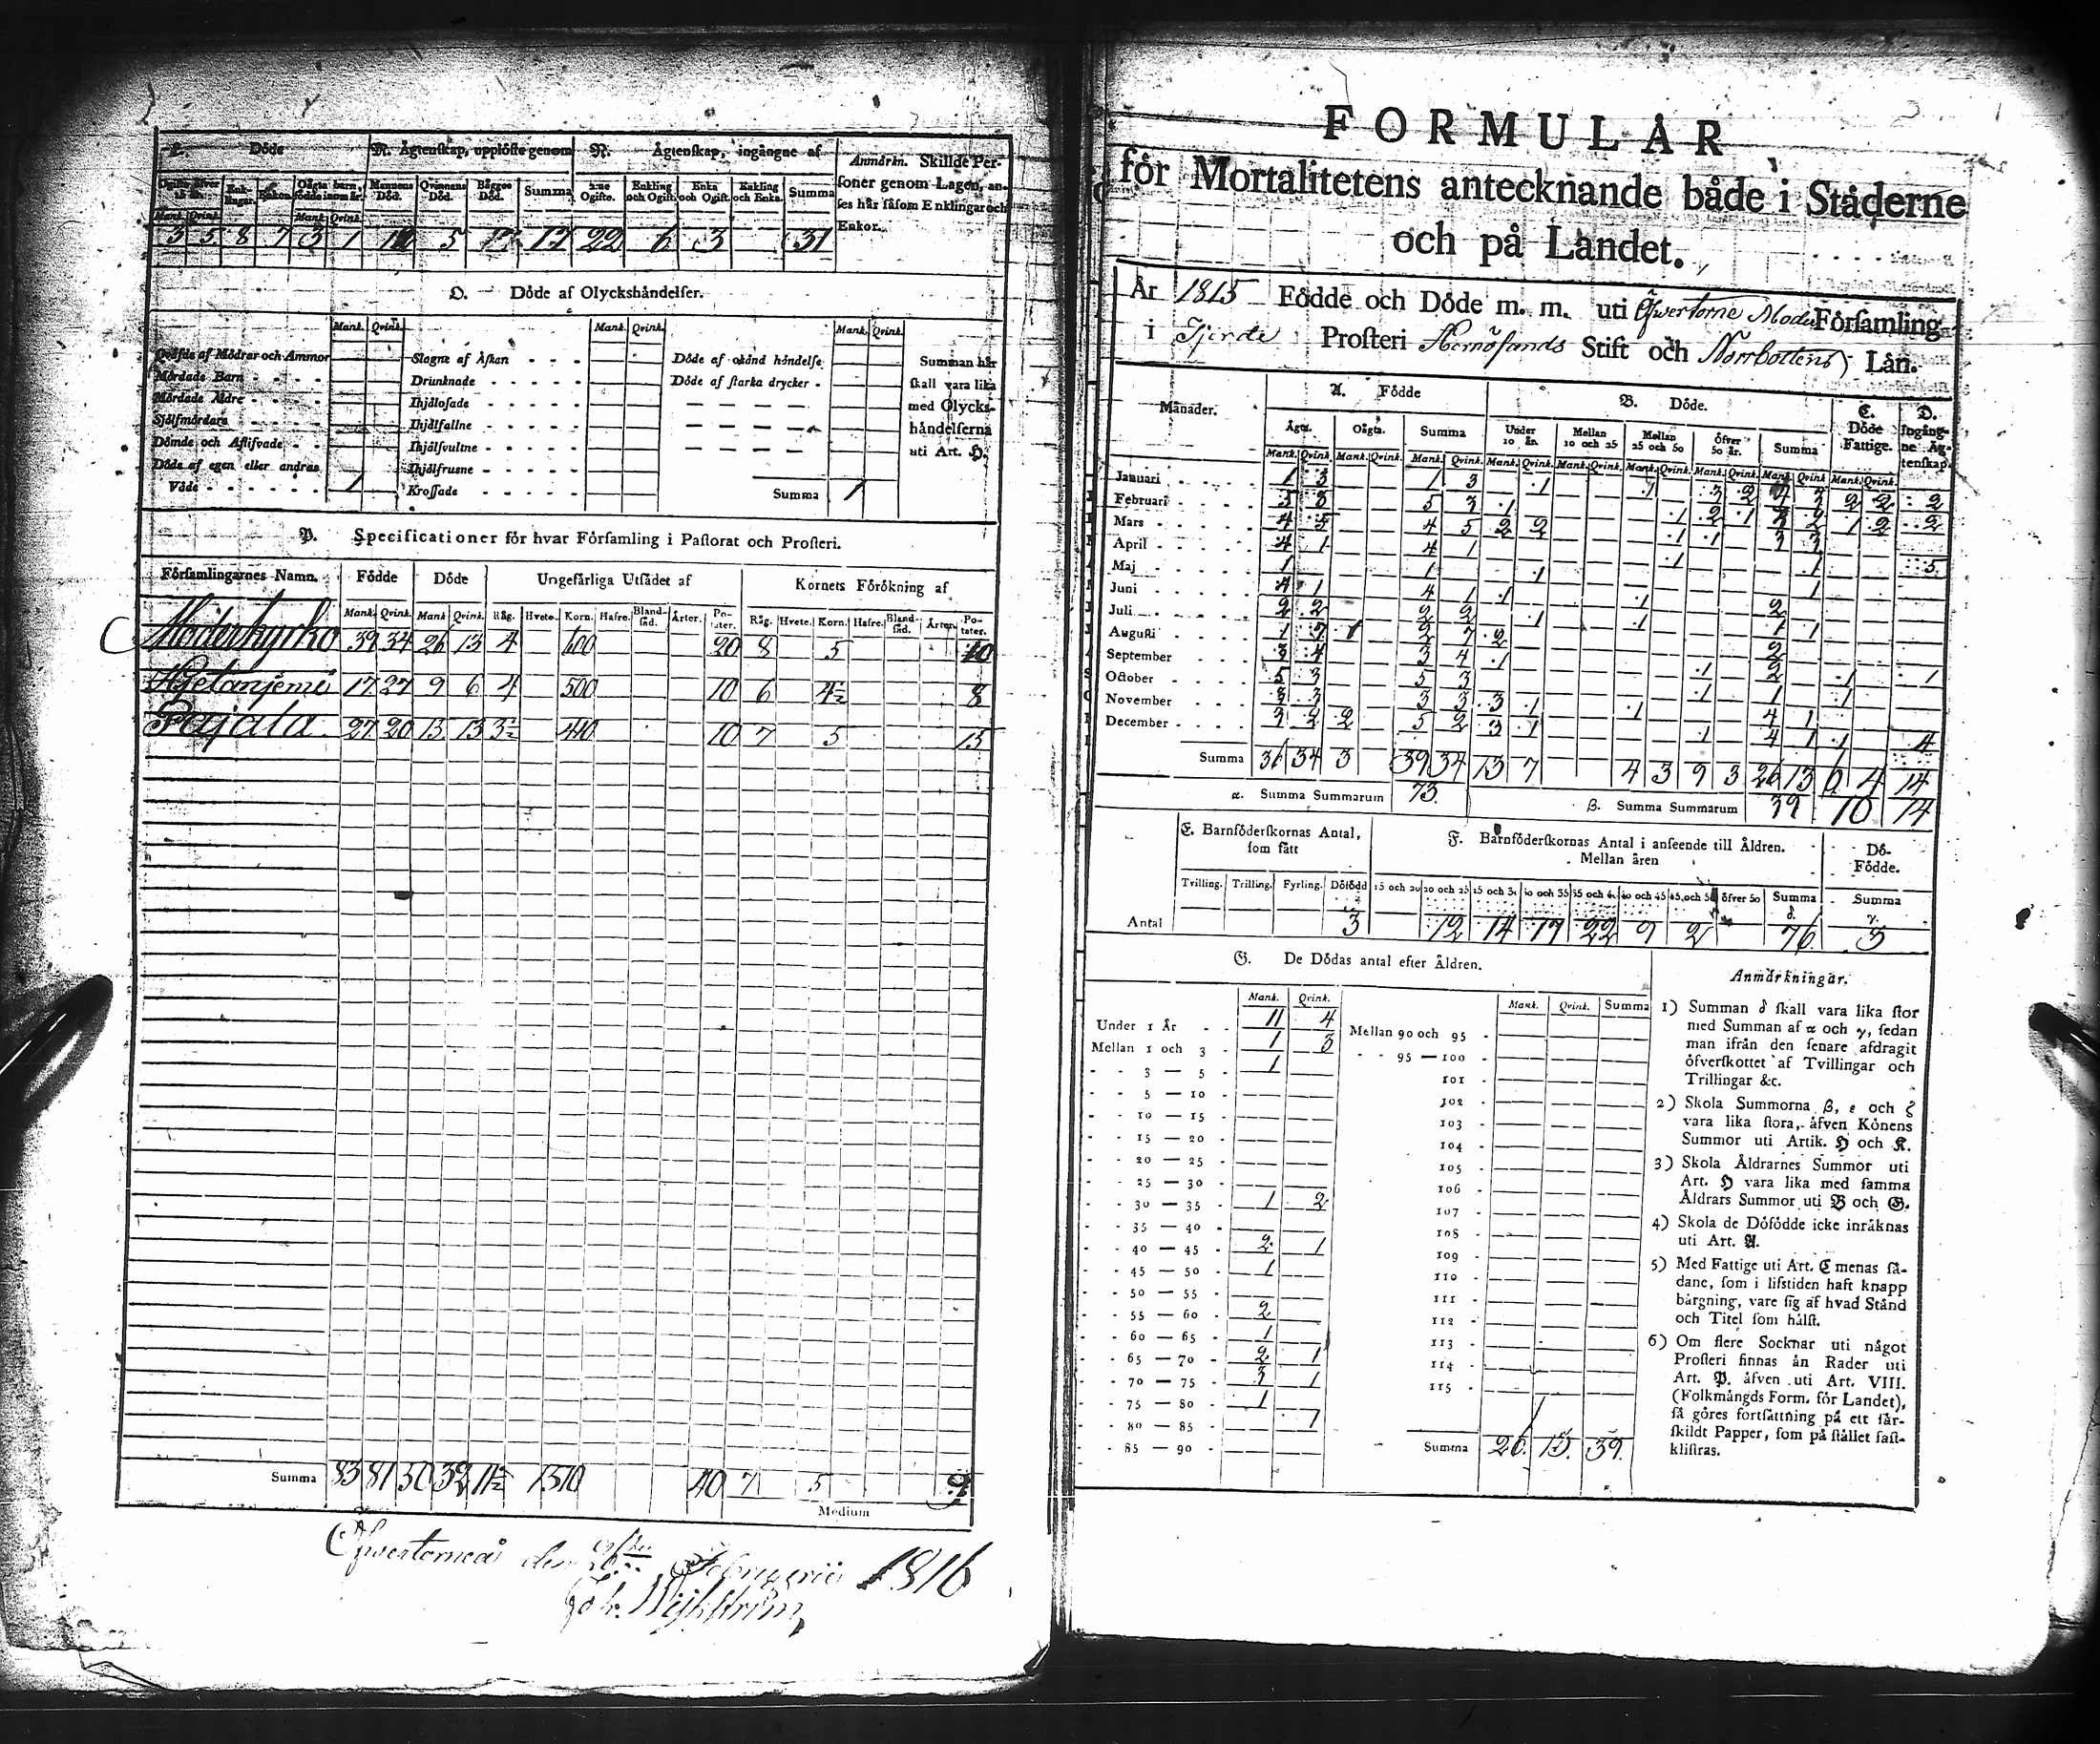 L. Döde
M. Ägtenskap, upplöste genom
N. Ägtenskap, ingångne af
Anmärkn. Skillde Per-
soner genom Lagen, an-
ses här såsom Enklingar och
Enkor.
Enk-
lingar. Enkor. Oägta barn,
födde inom år. Mannens
Död. Qvinnans
Död. Bägges
Död. Summa Ogifte. Enkling
och Ogift. Enka
och Ogift. Enkling
och Enka. Summa
Mank. Qvink. Mank. Qvink.
3 5 8 7 3 1 12 5 17 22 6 3 31
O. Döde af Olyckshändelser.
Mank. Qvink. Mank. Qvink. Mank. Qvink.
Qväfde af Mödrar och Ammor
Mördade Barn
Mördade Äldre
Sjelfmördare
Dömde och Aflifvade
Döde af egen eller andras
Våde 1
Slagne af Åskan
Drunknade
Ihjälosade
Ihjälfallne
Ihjälsvultne
Ihjälfrusne
Krossade
Döde af okänd händelse
Döde af starka drycker
Summa 1
Summan här
skall vara lika
med Olycks-
händelserna
uti Art. H.
P. Specificationer för hvar Församling i Pastorat och Prosteri.
Församlingarnes Namn. Födde Döde Ungefärliga Utsädet af Kornets Förökning af
Mank. Qvink. Mank Qvink. Råg. Hvete. Korn. Hafre. Bland-
säd. Ärter. Po-
tater. Råg. Hvete. Korn. Hafre. Bland-
säd. Ärter. Po-
tater.
Moderkyrko 39 34 26 13 4 600 20 8 5 10
Hjetaniemi 17 27 9 6 4 500 10 6 4½ 8
Pajala 27 20 13 13 3½ 410 10 7 5 15
Summa 83 81 50 32 11½ 1510 40 7 5
Medium
Öfwertorneå den Februarii 1816
FORMULÄR
för Mortalitetens antecknande både i Städerne
och på Landet.
År 1815 Födde och Döde m. m. uti Öfwertorne Moder Församling
i Fjerde Prosteri Hernösands Stift och Norrbottens Län.
Månader. A. Födde B. Döde. C.
Döde
Fattige. D.
Ingång-
ne Äg-
tenskap.
Ägta. Oägta. Summa Under
10 år. Mellan
10 och 25 Mellan
25 och 50 Öfver
50 år. Summa
Mank. Qvink. Mank. Qvink. Mank. Qvink. Mank. Qvink. Mank. Qvink. Mank. Qvink. Mank. Qvink. Mank. Qvink. Mank. Qvink.
Januari 1 3 1 3 1 1 3 2 4 3 2 2 2
Februari 5 3 5 3 1 1 2 1 1 2 2
Mars 4 5 4 5 2 2 1 1 3 3
April 4 1 4 1 1 1 5
Maj 1 1 1 1
Juni 4 1 4 1 1 1 2
Juli 2 2 2 2 1 1 1 1
Augusti 1 7 1 2 7 2 2
September 3 4 3 4 1 1 2 1 1
October 5 3 5 3 1 1 1
November 3 3 3 3 3 1 1 4 1
December 3 2 2 5 2 3 1 1 4 1 1 4
Summa 36 34 3 39 34 13 7 4 3 9 3 26 13 6 4 14
α. Summa Summarum 73. β. Summa Summarum 39 10 14
E. Barnföderskornas Antal,
som fått
F. Barnföderskornas Antal i anseende till Åldren.
Mellan åren
Dö-
Födde.
Tvilling. Trilling. Fyrling. Dödfödd 15 och 20 20 och 25 25 och 30 30 och 35 35 och 40 40 och 45 45 och 50 öfver 50 Summa
δ. Summa
γ.
Antal 3 12 14 17 22 9 2 76 3
G. De Dödas antal efter Åldren.
Mank. Qvink. Mank. Qvink. Summa
Under 1 År 11 4
Mellan 1 och 3 1 3
3 — 5 1
5 — 10
10 — 15
15 — 20
20 — 25
25 — 30
30 — 35 1 2
35 — 40
40 — 45 2 1
45 — 50 1
50 — 55
55 — 60 2
60 — 65 1
65 — 70 2 1
70 — 75 3 1
75 — 80 1
80 — 85 1
85 — 90
Mellan 90 och 95
95 — 100
101
102
103
104
105
106
107
108
109
110
111
112
113
114
115
Summa 26. 13. 39.
Anmärkningar.
1) Summan δ skall vara lika stor
med Summan af α och γ, sedan
man ifrån den senare afdragit
öfverskottet af Tvillingar och
Trillingar &c.
2) Skola Summorna β, ε och ζ
vara lika stora, äfven Könens
Summor uti Artik. H och K.
3) Skola Åldrarnes Summor uti
Art. H vara lika med samma
Åldrars Summor uti B och G.
4) Skola de Döfödde icke inräknas
uti Art. A.
5) Med Fattige uti Art. C menas så-
dane, som i lifstiden haft knapp
bärgning, vare sig af hvad Stånd
och Titel som hälst.
6) Om flere Socknar uti något
Prosteri finnas än Rader uti
Art. P. äfven uti Art. VIII.
(Folkmängds Form. för Landet),
så göres fortsättning på ett sär-
skildt Papper, som på stället fast-
klistras.